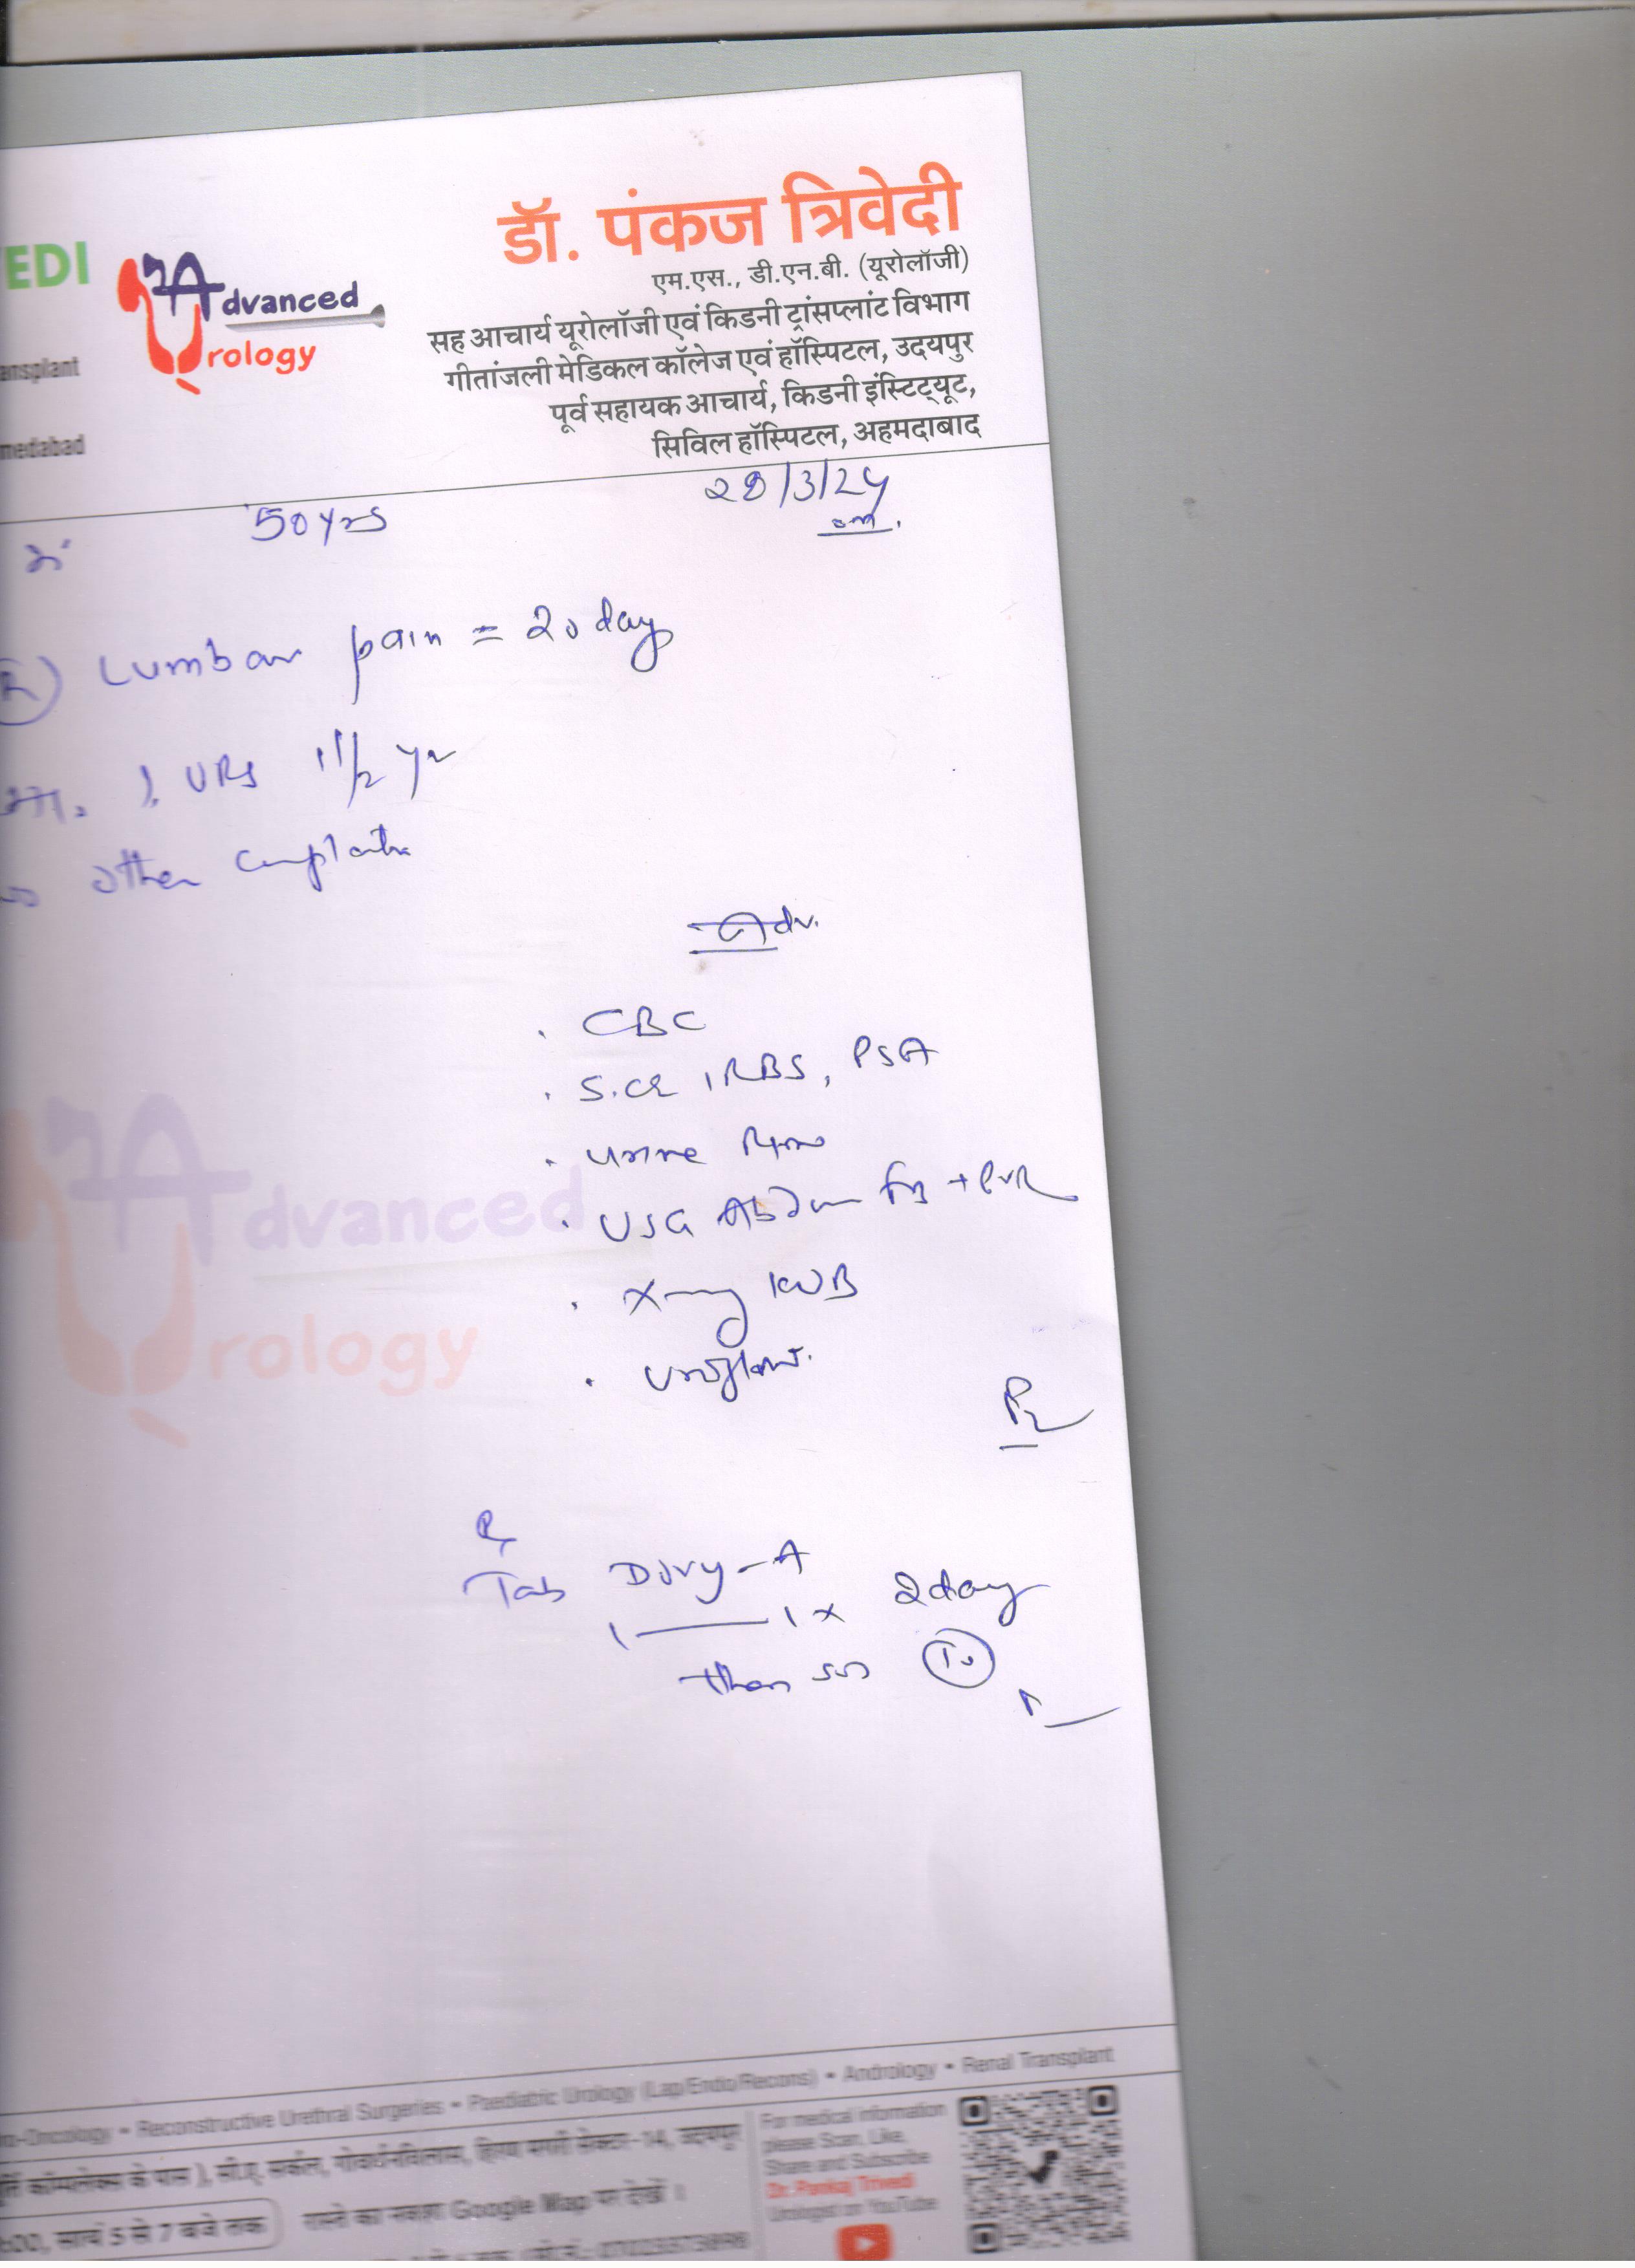 डॉ. पंकज त्रिवेदी
एम.एस., डी.एन.बी. (यूरोलॉजी)
सह आचार्य यूरोलॉजी एवं किडनी ट्रांसप्लांट विभाग
गीतांजली मेडिकल कॉलेज एवं हॉस्पिटल, उदयपुर
पूर्व सहायक आचार्य, किडनी इंस्टिट्यूट,
सिविल हॉस्पिटल, अहमदाबाद
EDI
Advanced
Urology
ansplant
medabad
50 yrs
28/3/24
Lumbar pain = 20 day
URS 1 1/2 yr
other
Adv.
. CBC
. S.CR, RBS, PSA
. Urine
. USG Abdom + PVR
. X-ray KUB
. Uroflow.
Advanced
Urology
Tab A
1——1 x 2day
then SOS
ro-Oncology • Reconstructive Urethral Surgeries • Paediatric Urology (Lap/Endo/Recons) • Andrology • Renal Transplant
रास्ते का नक्शा Google Map पर देखें ।
:00, सायं 5 से 7 बजे तक
For medical information
please Scan, Like,
Share and Subscribe
Dr. Pankaj Trivedi
Urologist on YouTube